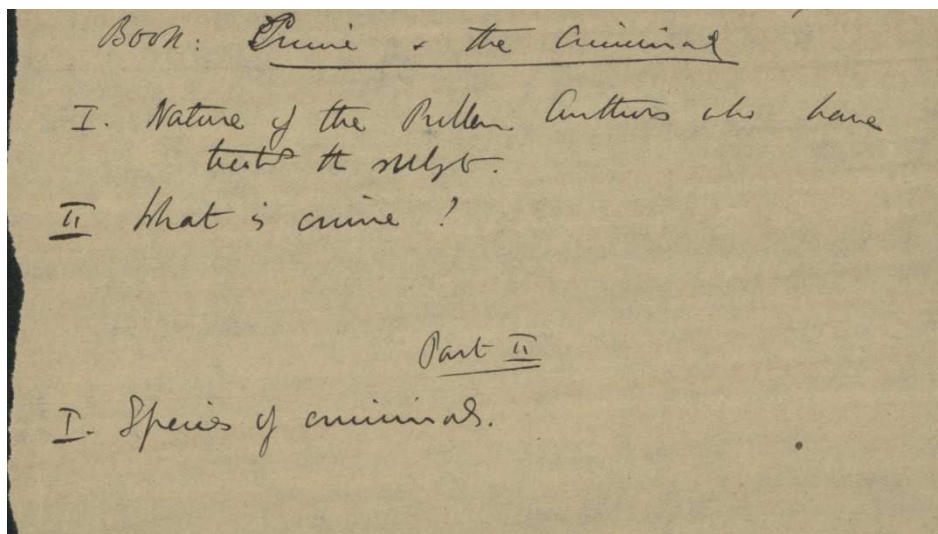 Book: Crime & the Criminal
I. Nature of the Problem. Authors who have
treated the subject.
II What is crime?
Part II
I. Species of criminals.